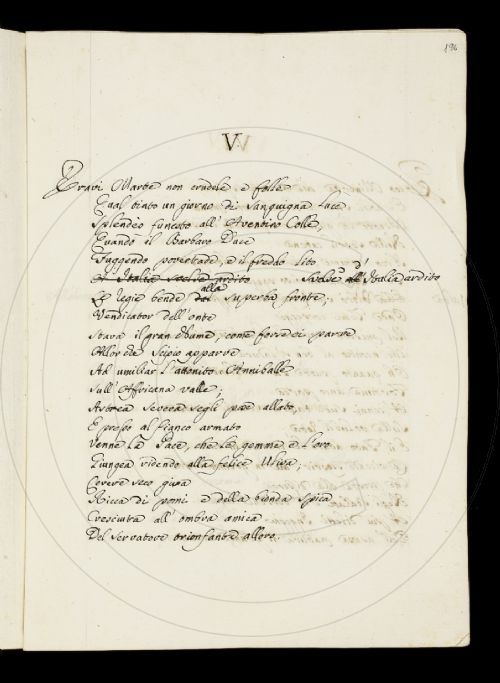 196
V.
Eravi Marte non crudele e folle
Qual tinto un giorno di sanguigna luce
Splendèo funesto all' Aventino Colle,
Quando il Barbaro Duce
Fuggendo povertade, e il freddo lito
d'
Svelse all' Italia ardito
alla
Le regie bende dal superba fronte;
Vendicator dell' onte
Stava il gran Nume, come forse ei parve
Allor che Scipio apparve
Ad umiliar l'attonito Anniballe
Sull' Affricana valle;
Astrea severa segli pose allato,
E presso al fianco armato
Venne la Pace, che le gemme e l'oro
Giungea ridendo alla felice Uliva;
Cerere seco giva
Ricca di pomi e della bionda spica
Cresciuta all' ombra amica
Del servatore trionfante alloro.